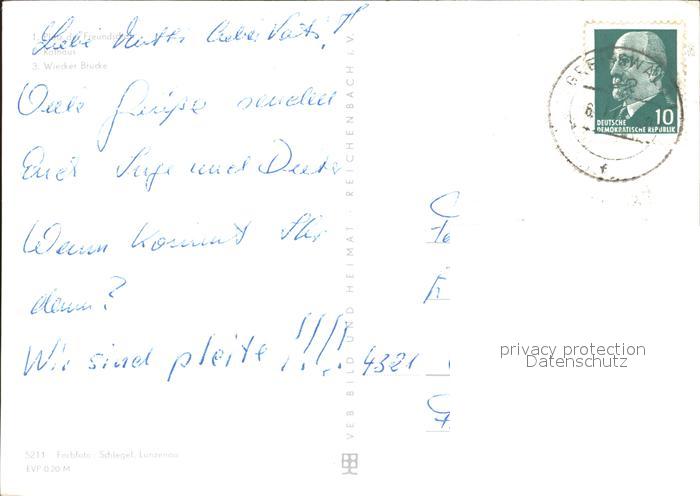 Liebe Mutti lieber Vati!
1. Haus der Freundschaft
Rathaus
3. Wiecker Brücke
Viele Grüße senden
Euch Inge und Dieter
Wann kommt Ihr
denn?
Wir sind pleite !!!!
4321
GREIFSWALD
DEUTSCHE
DEMOKRATISCHE REPUBLIK
10
VEB BILD UND HEIMAT · REICHENBACH i. V.
privacy protection
Datenschutz
5211 Farbfoto: Schlegel, Lunzenau
EVP 0.20 M